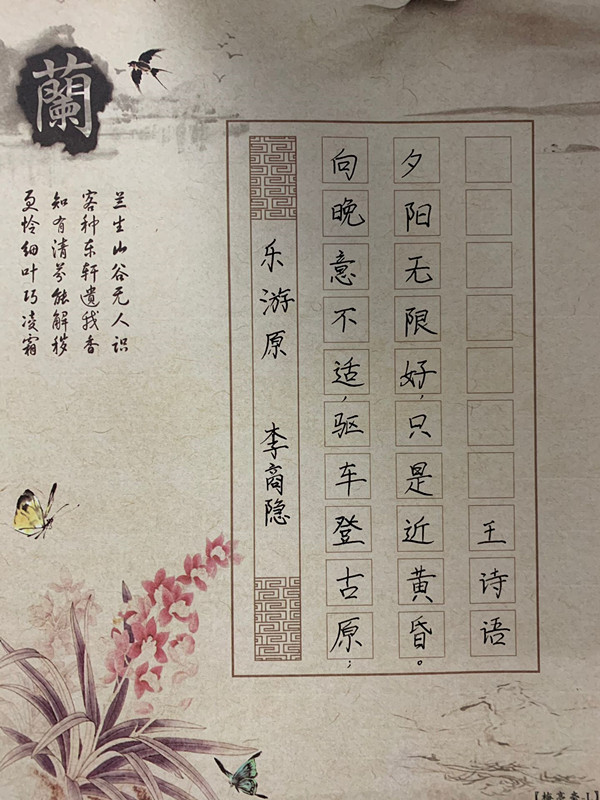 蘭
兰生山谷无人识
客种东轩遗我香
知有清芬能解秽
更怜细叶巧凌霜
乐游原 李商隐
向晚意不适,驱车登古原;
夕阳无限好,只是近黄昏。
王诗语